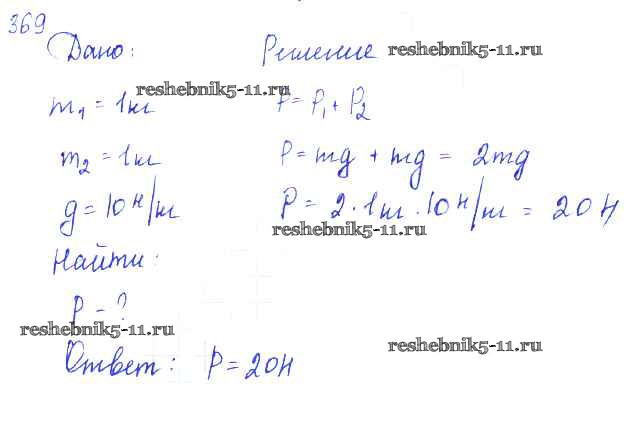 369
Дано: Решение reshebnik5-11.ru
reshebnik5-11.ru
m₁ = 1кг P = P₁ + P₂
m₂ = 1кг P = mg + mg = 2mg
g = 10 Н/кг P = 2 · 1кг · 10 Н/кг = 20 Н
reshebnik5-11.ru
Найти:
P - ?
reshebnik5-11.ru
reshebnik5-11.ru
Ответ: P = 20Н